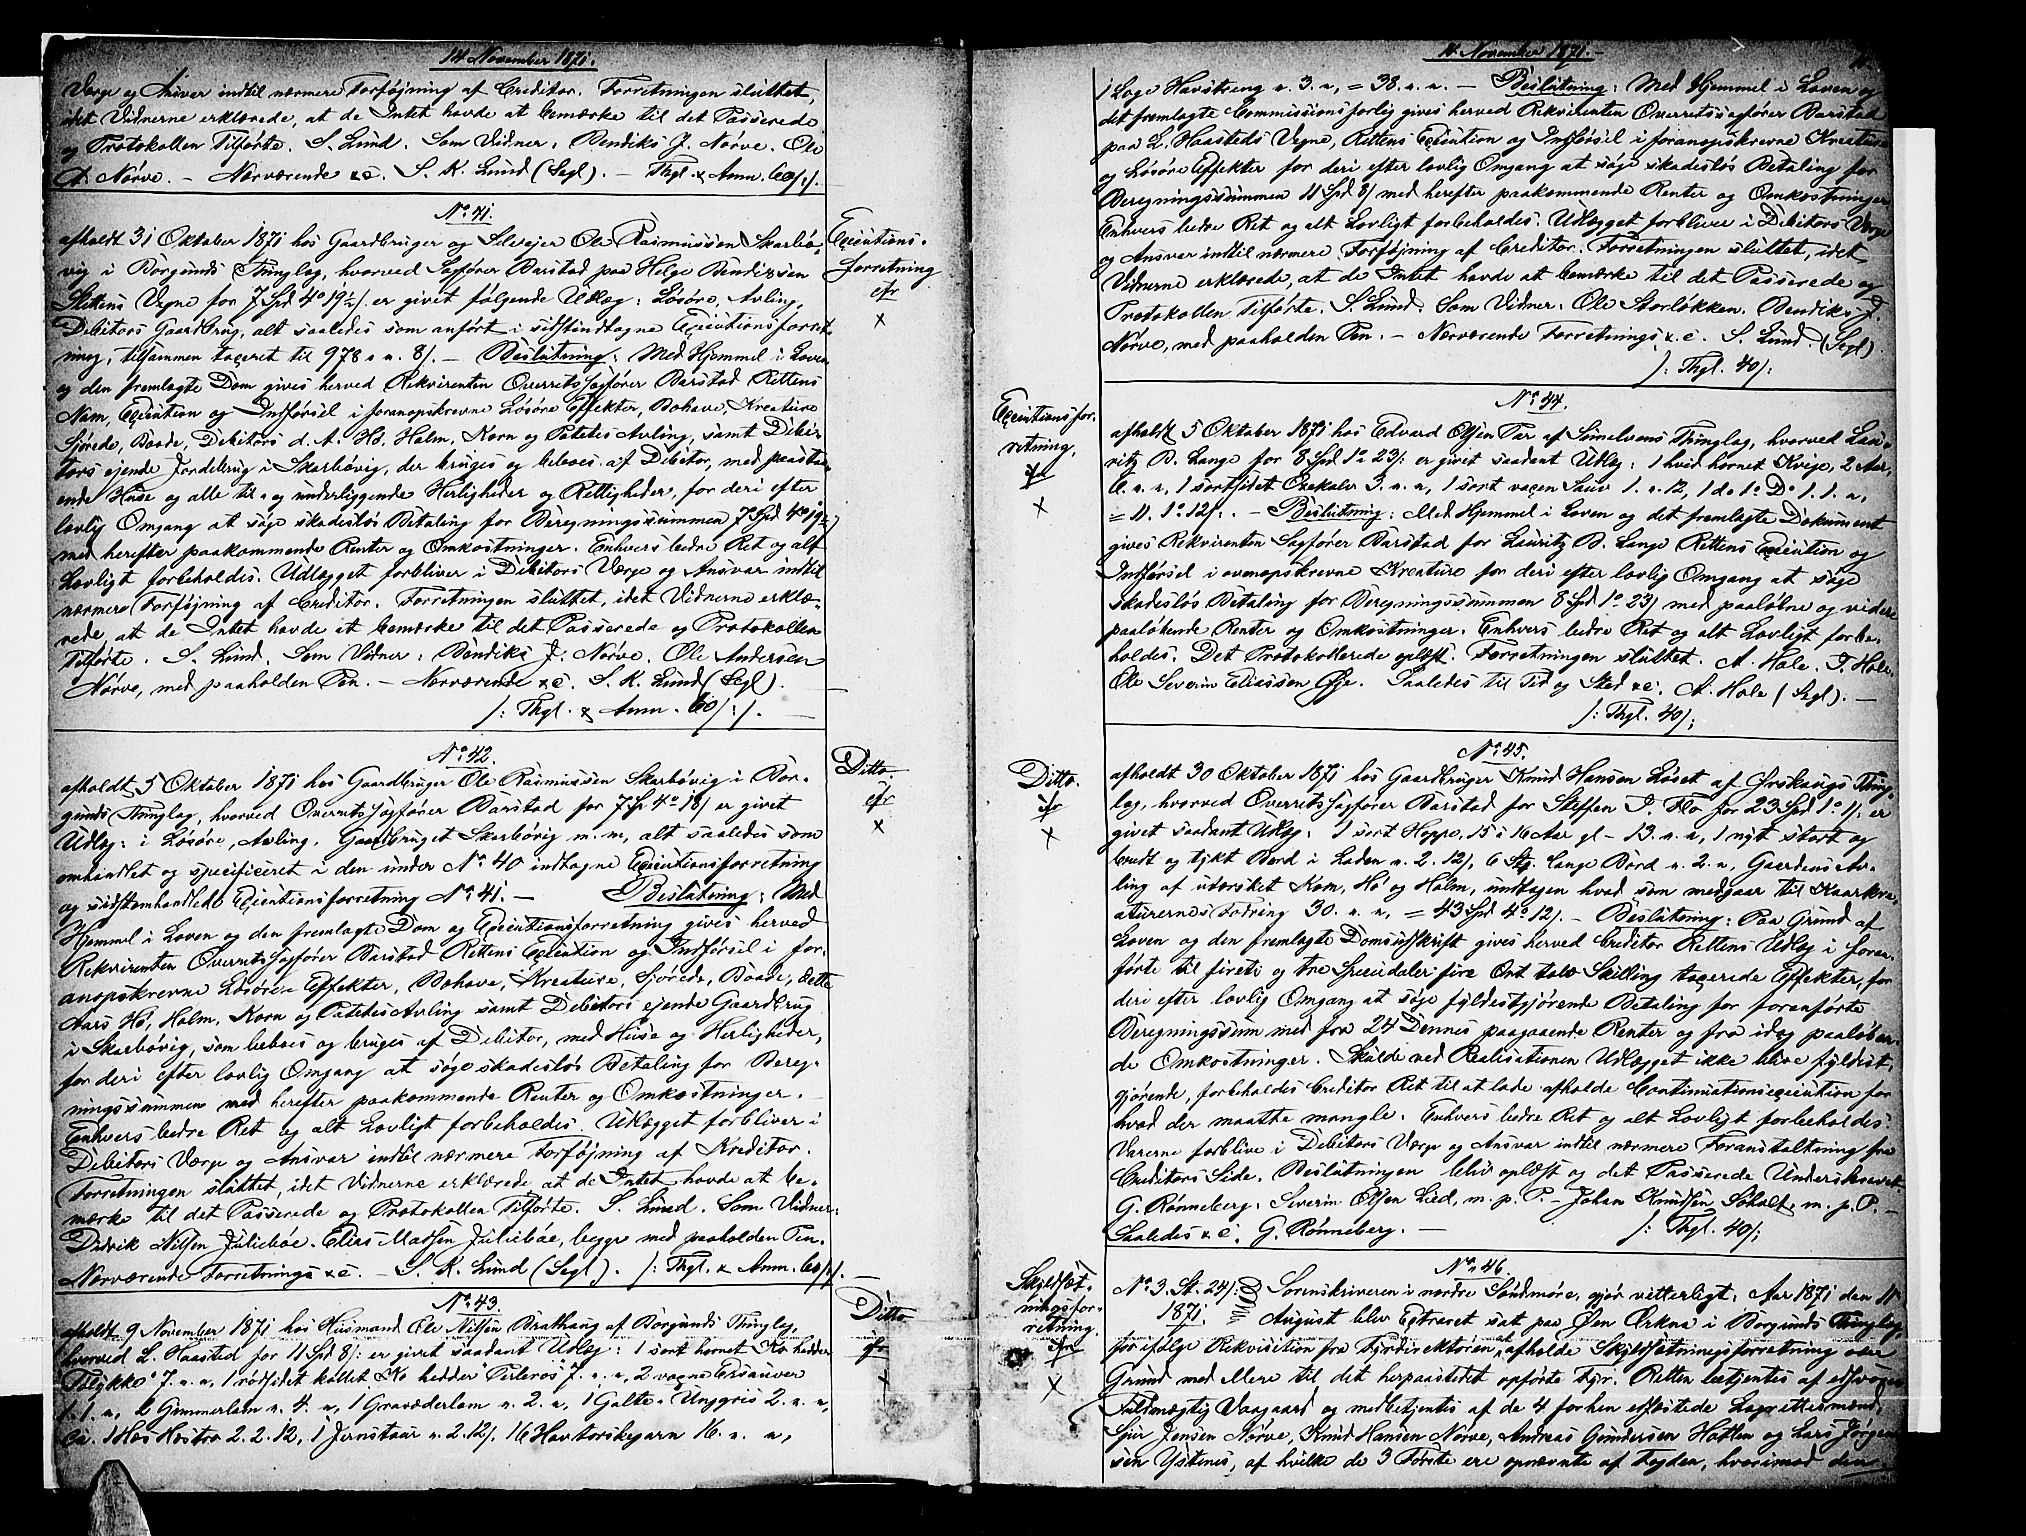 14 November 1871.
Værge og Ansvar indtil nærmere Forføjning af Creditor. Forretningen sluttet,
idet Vidnerne erklærede, at de Intet havde at bemærke til det Passerede
og Protokollen Tilførte. S. Lund. Som Vidner: Bendiks J. Nørve. Ole
A. Nørve. — Nærværende &c. S. K. Lund (Segl). — Thgl. & Anm. 60/:/.
No. 41.
Executions-
forretning
cfr
x
afholdt 31 Oktober 1871 hos Gaardbruger og Selvejer Ole Rasmussen Skarbø-
vig i Borgunds Thinglag, hvorved Sagfører Barstad paa Helge Bendixsen
Slettens Vegne for 7 Spd 4 o 19½ /. er givet følgende Udlæg: Løsøre, Avling,
Debitors Gaardbrug, alt saaledes som anført i sidstindtagne Executionsforret-
ning, tilsammen taxeret til 978 „ „ 8/. — Beslutning: Med Hjemmel i Loven
og den fremlagte Dom gives herved Rekvirenten Overretssagfører Barstad Rettens
Nam, Execution og Indførsel i foranopskrevne Løsøre Effekter, Bohave, Kreature
Sjørede, Baade, Debitors d. A. Hø, Halm, Korn og Potetes Avling, samt Debi-
tors ejende Jordebrug i Skarbøvig, der bruges og beboes af Debitor, med paasta-
ende Huse og alle til- og underliggende Herligheder og Rettigheder, for deri efter
lovlig Omgang at søge skadesløs Betaling for Beregningssummen 7 Spd 4 o 19½ /
med herefter paakommende Renter og Omkostninger. Enhvers bedre Ret og alt
Lovligt forbeholdes. Udlægget forbliver i Debitors Værge og Ansvar indtil
nærmere Forføjning af Creditor. Forretningen sluttet, idet Vidnerne erklæ-
rede, at de Intet havde at bemærke til det Passerede og Protokollen
Tilførte. S. Lund. Som Vidner: Bendiks J. Nørve. Ole Andersen
Nørve, med paaholden Pen. — Nærværende &c. S. K. Lund (Segl).
/: Thgl. & Anm. 60/:/. —
No. 42.
Ditto.
cfr
x
afholdt 5 Oktober 1871 hos Gaardbruger Ole Rasmussen Skarbøvig i Bor-
gunds Thinglag, hvorved Overretssagfører Barstad for 7 Sp 4 o 18/ er givet
Udlæg: i Løsøre, Avling, Gaardbruget Skarbøvig m. m, alt saaledes som
omhandlet og specificeret i den under No. 40 indtagne Executionsforretning
og sidstomhandlede Executionsforretning No. 41. — Beslutning: Med
Hjemmel i Loven og den fremlagte Dom og Executionsforretning gives herved
Rekvirenten Overretssagfører Barstad Rettens Execution og Indførsel i for-
anopskrevne Løsøre Effekter, Bohave, Kreature, Sjørede, Baade, dette
Aars Hø, Halm, Korn og Potetes Avling samt Debitors ejende Gaardbrug
i Skarbøvig, som beboes og bruges af Debitor, med Huse og Herligheder,
for deri efter lovlig Omgang at søge skadesløs Betaling for Bereg-
ningssummen med herefter paakommende Renter og Omkostninger. —
Enhvers bedre Ret og alt Lovligt forbeholdes. Udlægget forbliver i
Debitors Værge og Ansvar indtil nærmere Forføjning af Kreditor.
Forretningen sluttet, idet Vidnerne erklærede at de Intet havde at be-
mærke til det Passerede og Protokollen Tilførte. S. Lund. Som Vidner:
Didrik Nilsen Juliebøe. Elias Madsen Juliebøe, begge med paaholden Pen.
Nærværende Forretnings &c. — S. K. Lund (Segl). /: Thgl. & Anm. 60/:/. —
No. 43.
Ditto
cfr
x
afholdt 9 November 1871 hos Husmand Ole Nilsen Brathaug af Borgunds Thinglag,
hvorved L. Haasted for 11 Spd 8/: er givet saadant Udlæg: 1 sort hornet Ko hedder
"Blykke" 7. „ „, 1 rødsidet kollet Ko hedder "Perleros" 7. „ „, 2 voxne Ersauver
1. 1. „, 2 Gimmerlam „. 4. „, 1 Gravæderlam „. 2. „, 1 Galte-Unggris 2. „ „,
1 Jernstaur „. 2. 12/. 16 Havtorskegarn 16. „. „,
14 November 1871. —
1 Loge Havstreng „. 3. „, = 38. „. „. — Beslutning: Med Hjemmel i Loven og
det fremlagte Commissionsforlig gives herved Rekvirenten Overretssagfører Barstad
paa L. Haasteds Vegne, Rettens Execution og Indførsel i foranopskrevne Kreature
og Løsøre Effekter for deri efter lovlig Omgang at søge skadesløs Betaling for
Beregningssummen 11 Spd 8/ med herefter paakommende Renter og Omkostninger
Enhvers bedre Ret og alt Lovligt forbeholdes. Udlægget forbliver i Debitors Værge
og Ansvar indtil nærmere Forføjning af Creditor. Forretningen sluttet, idet
Vidnerne erklærede, at de Intet havde at bemærke til det Passerede og
Protokollen Tilførte. S. Lund. Som Vidner: Ole Storløkken. Bendik J.
Nørve, med paaholden Pen. — Nærværende Forretnings &c. S. Lund. (Segl).
/: Thgl. 40/:
No. 44.
Executionsfor-
retning,
cfr
x
afholdt 5 Oktober 1871 hos Edvard Olsen Tar af Sunelvens Thinglag, hvorved Lau-
ritz B. Lange for 8 Spd 1 o 23/: er givet saadant Udlæg: 1 hvid hornet Kvige, 2 Aar,
6. „. „, 1 sortsidet Oxekalv 3. „. „, 1 sort voxen Sauv 1. „. 12, 1 do 1 o D o 1. 1. „,
= 11. 1 o 12/. — Beslutning: Med Hjemmel i Loven og det fremlagte Dokument
gives Rekvirenten Sagfører Barstad for Lauritz B. Lange Rettens Execution og
Indførsel i ovenopskrevne Kreature for deri efter lovlig Omgang at søge
skadesløs Betaling for Beregningssummen 8 Spd 1 o 23/ med paaløbne og videre
paaløbende Renter og Omkostninger. Enhvers bedre Ret og alt Lovligt forbe-
holdes. Det Protokollerede oplæst. Forretningen sluttet. A. Hole. P. Hole.
Ole Severin Eliassen Øje. Saaledes til Tid og Sted &c. A. Hole (Segl). —
/: Thgl. 40/:
No. 45.
Ditto.
cfr
x
afholdt 30 Oktober 1871 hos Gaardbruger Knud Hansen Løset af Ørskougs Thing-
lag, hvorved Overretssagfører Barstad for Steffen P. Flo for 23 Spd 1 o 11/: er
givet saadant Udlæg: 1 sort Hoppe, 15 à 16 Aar gl — 13. „. „, 1 nyt stort og
bredt og tykt Bord i Laden „. 2. 12/, 6 Stk. lange Bord „. 2. „, Gaardens Av-
ling af utørsket Korn, Hø og Halm, undtagen hvad som medgaar til Kaarkre-
aturernes Fodring 30. „. „, = 43 Spd 4 o 12/. — Beslutning: Paa Grund af
Loven og den fremlagte Domsudskrift gives herved Creditor Rettens Udlæg i foran-
førte til fireti og tre Speciedaler fire Ort tolv Skilling taxerede Effekter, for
deri efter lovlig Omgang at søge fyldestgjørende Betaling for foranførte
Beregningssum med fra 24 Dennes paagaaende Renter og fra idag paaløben-
de Omkostninger. Skulde ved Realisationen Udlægget ikke blive fyldest-
gjørende, forbeholdes Creditor Ret til at lade afholde Continuationsexecution for
hvad der maatte mangle. Enhvers bedre Ret og alt Lovligt forbeholdes:
Varerne forblive i Debitors Værge og Ansvar indtil nærmere Foranstaltning fra
Creditors Side. Beslutningen blev oplæst og det Passerede Underskrevet
G. Rønneberg. Severin Olsen Lied, m. p. P. — Johan Knudsen Søholt, m. p. P. —
Saaledes &c. G. Rønneberg. — /: Thgl. 40/:
No. 46.
Skyldsæt-
ningsfor-
retning.
cfr
x
No. 3. St. 24/:
1871.
Sorenskriveren i nordre Søndmøre, gjør vitterligt: Aar 1871 den 11
August blev Extraret sat paa Øen Erkna i Borgunds Thinglag,
for ifølge Rekvisition fra Fyrdirektøren at afholde Skyldsætningsforretning over
Grund med Mere til det herpaastedet opførte Fyr. Retten betjentes af edsvoren
Fuldmægtig Vaagaard og medbetjentes af de 4 forhen edfæstede Lagrettesmænd,
Sjur Jensen Nørve, Knud Hansen Nørve, Andreas Gundersen Hatlen og Lars Jørgen-
sen Ystenes, af hvilke de 3 Første ere opnævnte af Fogden, hvorimod den